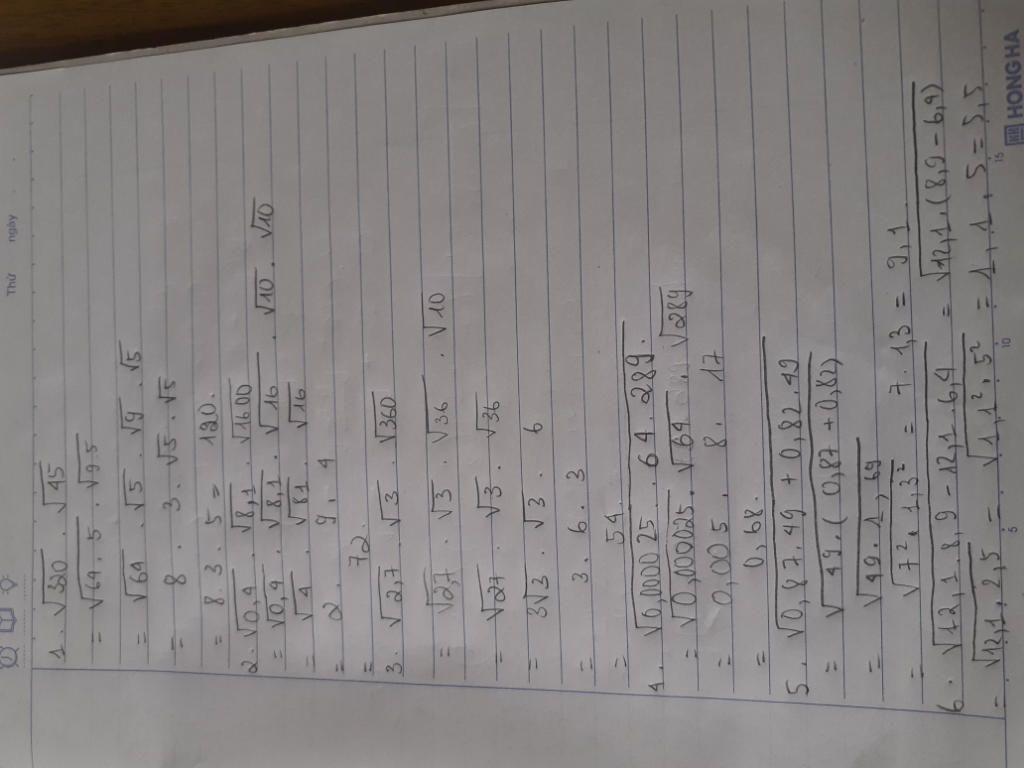 Thứ
ngày
1. √320 . √45
= √64.5 . √9.5
= √64 . √5 . √9 . √5
= 8 . 3 . √5 . √5
= 8.3.5 = 120.
2. √0,4 . √8,1 . √1600
= √0,4 . √8,1 . √16 . √10 . √10
= √4 . √81 . √16
= 2 . 9 . 4
= 72.
3. √2,7 . √3 . √360
= √2,7 . √3 . √36 . √10
= √27 . √3 . √36
= 3√3 . √3 . 6
= 3 . 6 . 3
= 54
4. √0,000025 . 64 . 289.
= √0,000025 . √64 . √289
= 0,005 . 8 . 17
= 0,68.
5. √0,87.49 + 0,82.49
= √49.(0,87 + 0,82)
= √49.1,69
= √7².1,3² = 7.1,3 = 9,1
6. √12,1.8,9 - 12,1.6,4 = √12,1.(8,9-6,4)
= √12,1.2,5 = √1,1².5² = 1,1.5 = 5,5
5
10
15
HONG HA